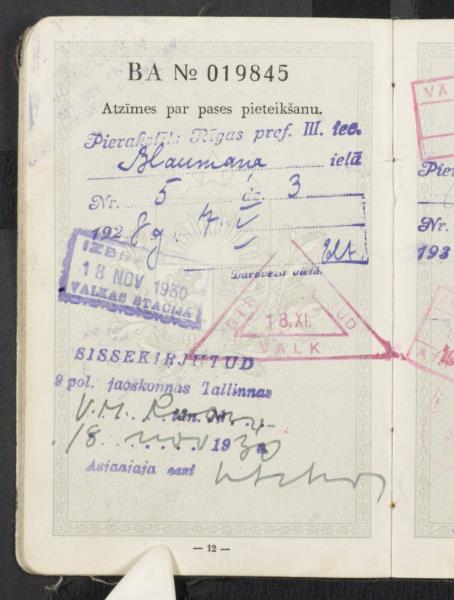 BA № 019845
Atzīmes par pases pieteikšanu.
Pierakstīts Rīgas pref. III. iec.
Blaumaņa ielā
Nr. 5 dz. 3
1928 g. 7. V
Darbveža vietā
IZBR
18 NOV 1930
VALKAS STACIJA
SISS UD
18. XI.
VALK
SISSEKIRJUTUD
2 pol. jaoskonnas Tallinnas
V. M. tän. Nr. 4
18. nov 1930 a.
Asjaajaja eest
— 12 —
VĀ
Pier
Nr.
193